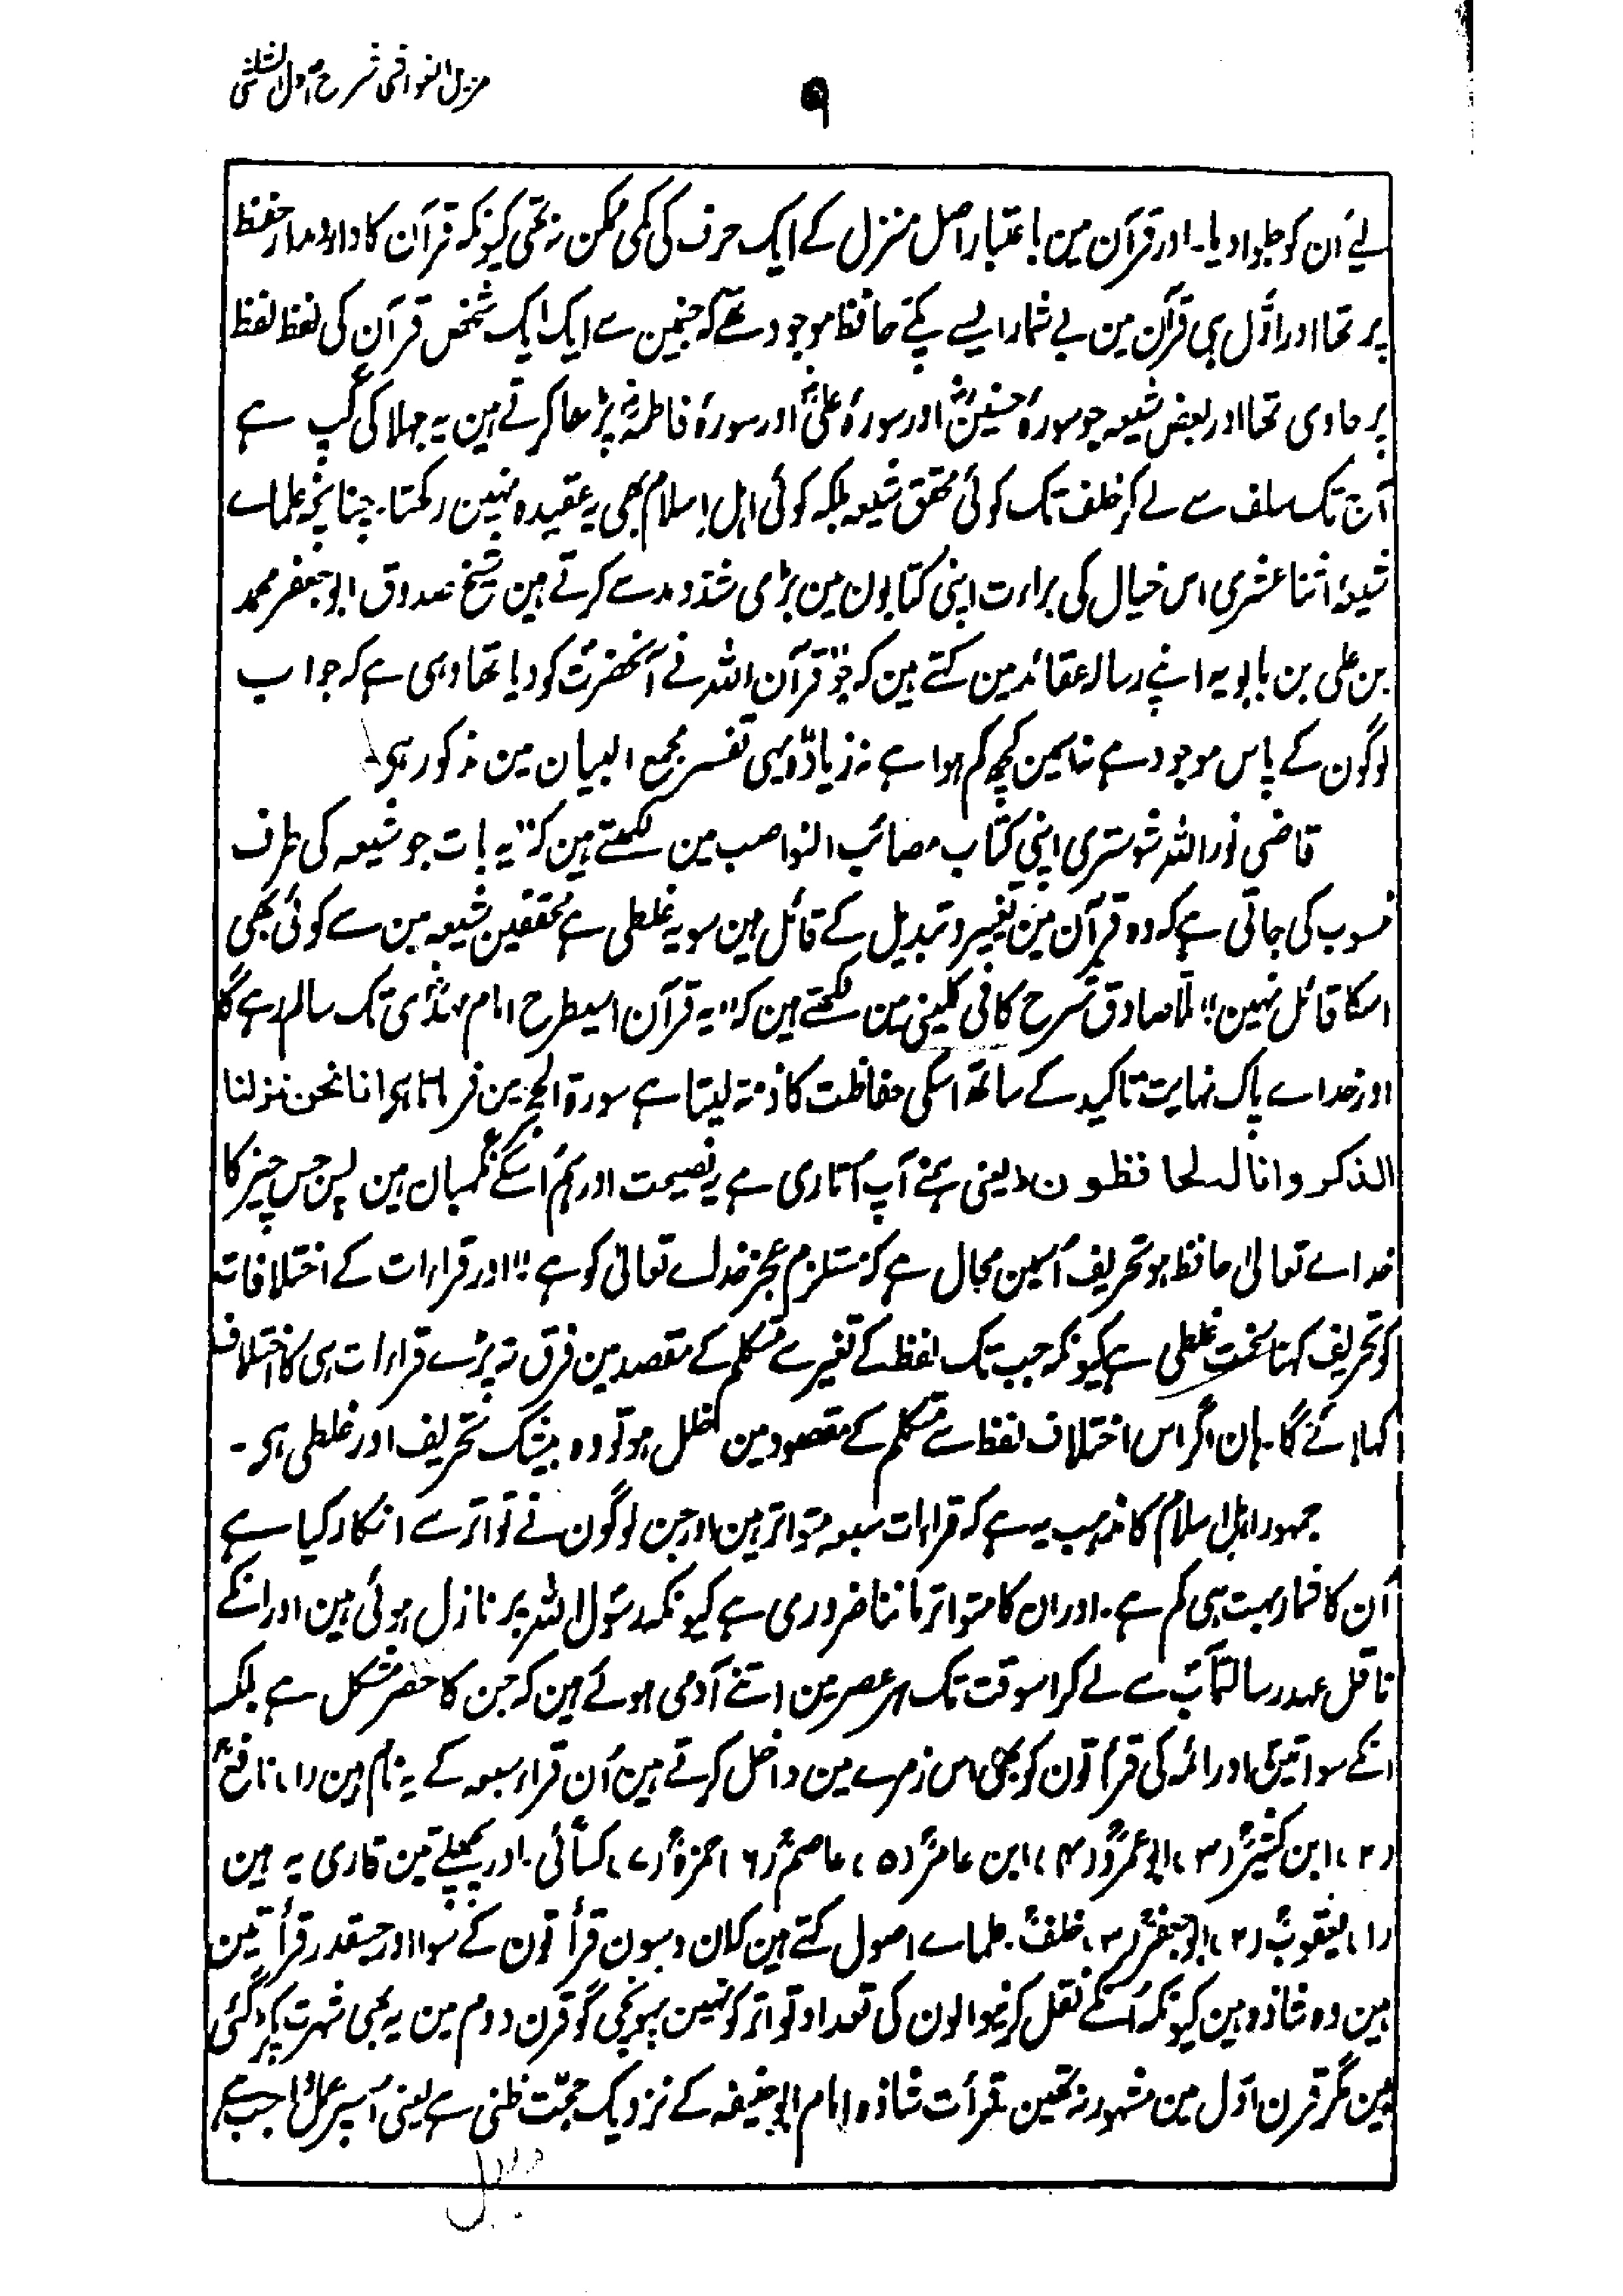 ۹
مزیل الغواشی شرح اصول الشاشی
لیے اُن کو جلوا دیا۔ اور قرآن مین باعتبار اصل منزل کے ایک حرف کی کمی ممکن نہ تھی کیونکہ قرآن کا دارومدار حفظ
پر تھا اور اوّل ہی قرآن مین بے شمار ایسے پکے حافظ موجود تھے کہ جنمین سے ایک ایک شخص قرآن کی لفظ لفظ
پر حاوی تھا اور بعض شیعہ جو سورۂ حسنینؓ اور سورۂ علیؓ اور سورۂ فاطمہؓ پڑھا کرتے ہین یہ جہلا کی گپ ہے
آج تک سلف سے لے کر خلف تک کوئی محقق شیعہ بلکہ کوئی اہل اسلام بھی یہ عقیدہ نہین رکھتا۔ چنانچہ علماے
شیعۂ اثنا عشری اس خیال کی براءت اپنی کتابون مین بڑی شد و مد سے کرتے ہین شیخ صدوق ابو جعفر محمد
بن علی بن بابویہ اپنے رسالہ عقائد مین کہتے ہین کہ جو قرآن اللہ نے آنحضرتؐ کو دیا تھا وہی ہے کہ جو اب
لوگون کے پاس موجود ہے نہ اسمین کچھ کم ہوا ہے نہ زیادہ یہی تفسیر مجمع البیان مین مذکور ہی۔
قاضی نور اللہ شوستری اپنی کتاب مصائب النواصب مین لکھتے ہین کہ "یہ بات جو شیعہ کی طرف
منسوب کی جاتی ہے کہ وہ قرآن مین تغییر و تبدیل کے قائل ہین سو یہ غلطی ہے محققین شیعہ مین سے کوئی بھی
اسکا قائل نہین" ملا صادق شرح کافی کلینی مین لکھتے ہین کہ "یہ قرآن اسیطرح امام مہدی تک سالم رہے گا
اور خداے پاک نہایت تاکید کے ساتھ اسکی حفاظت کا ذمہ لیتا ہے سورة الحجر مین فرماتا ہی انا نحن نزلنا
الذکر وانا لہ لحافظون (یعنی ہمنے آپ اُتاری ہے یہ نصیحت اور ہم اُسکے نگہبان ہین پس جس چیز کا
خداے تعالیٰ حافظ ہو تحریف اُسمین محال ہے کہ مستلزم عجز خداے تعالیٰ کو ہے" اور قراءات کے اختلافات
کو تحریف کہنا سخت غلطی ہے کیونکہ جب تک لفظ کے تغیر سے متکلم کے مقصد مین فرق نہ پڑے قراءات ہی کا اختلاف
کہلائے گا۔ ہان اگر اس اختلاف لفظ سے متکلم کے مقصود مین خلل ہو تو وہ بیشک تحریف اور غلطی ہی۔
جمہور اہل اسلام کا مذہب یہ ہے کہ قراءات سبعہ متواتر ہین اور جن لوگون نے تواتر سے انکار کیا ہے
اُن کا شمار بہت ہی کم ہے۔ اور ان کا متواتر ماننا ضروری ہے کیونکہ رسول اللہ پر نازل ہوئی ہین اور انکے
ناقل عہد رسالتمآبؐ سے لے کر اسوقت تک ہر عصر مین اتنے آدمی ہوئے ہین کہ جن کا حصر مشکل ہے بلکہ
انکے سوا تین اور ائمہ کی قرأتون کو بھی اس زمرے مین داخل کرتے ہین اُن قراء سبعہ کے یہ نام ہین (۱) نافعؒ
(۲) ابن کثیرؒ (۳) ابو عمروؒ (۴) ابن عامرؒ (۵) عاصمؒ (۶) حمزہؒ (۷) کسائی۔ اور پچھلے تین قاری یہ ہین
(۱) یعقوبؒ (۲) ابو جعفرؒ (۳) خلفؒ۔ علماے اصول کہتے ہین کہ ان دسون قرأتون کے سوا اور جسقدر قرأتین
ہین وہ شاذہ ہین کیونکہ اُنکے نقل کرنیوالون کی تعداد تواتر کو نہین پہونچی گو قرن دوم مین یہ بھی شہرت پکڑ گئی
ہین مگر قرن اوّل مین مشہور نہ تھین قرأت شاذہ امام ابو حنیفہ کے نزدیک حجّت ظنی ہے یعنی اُسپر عمل واجب ہی